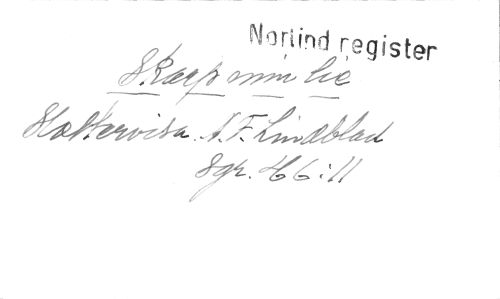 Norlind register
Skarp min lie
Slåttervisa. A. F. Lindblad
Sgr. H 6:11